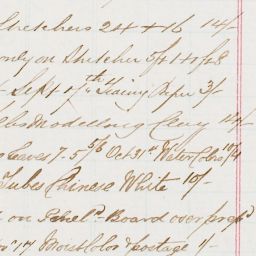 Stretchers 24 + 16 14/-
only on Stretcher 5/- 14/- &
Sept 17th Tracing Paper 3/-
lbs Modelling Clay 14/-
Leaves 7. 5/6 Oct 31st Water Colors 10/4
Tubes Chinese White 10/-
on Panel Board over prep'd
17 Moist Color & postage 1/-